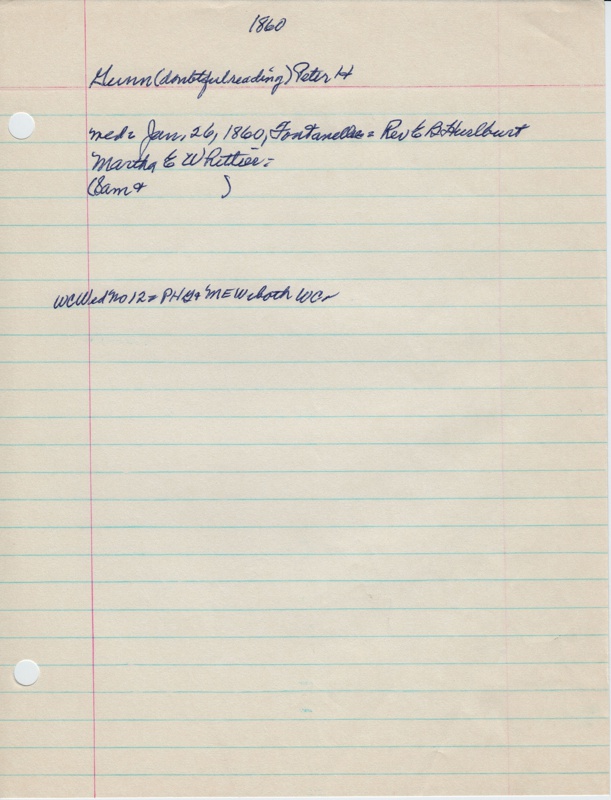 1860
Gunn (doubtful reading) Peter H
med= Jan, 26, 1860, Fontanelle= Rev E B Hurlburt
Martha E Whittier=
(Sam + )
WC Wed No 12= PHG + MEW both WC